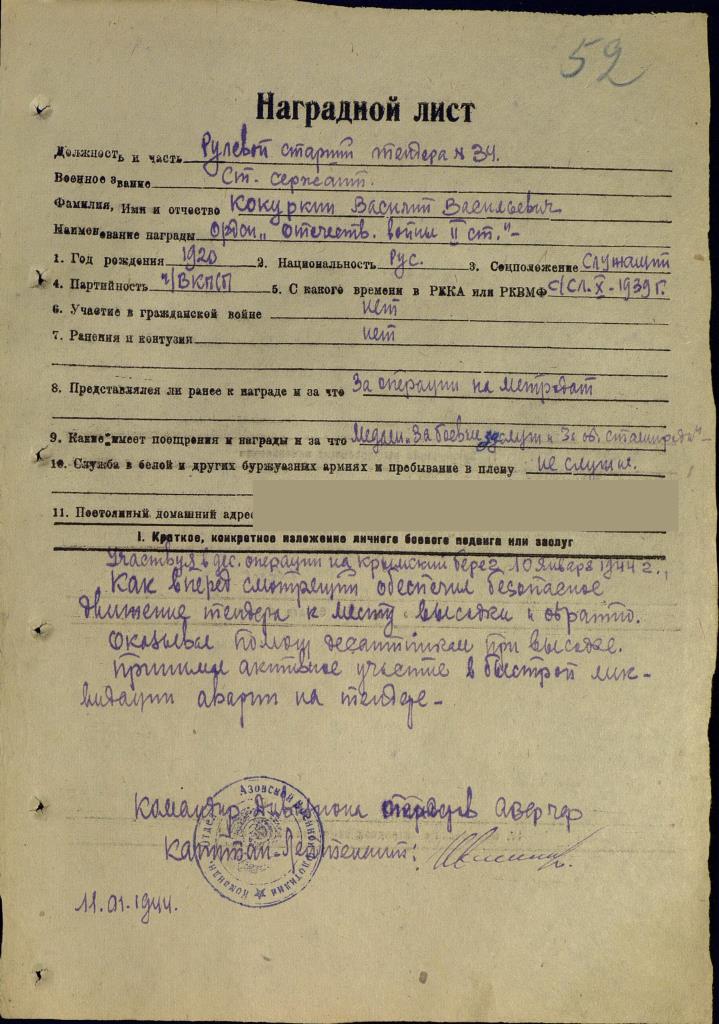 52
Наградной лист
Должность и часть Рулевой старший тендера № 34.
Военное звание Ст. сержант.
Фамилия, Имя и отчество Кокуркин Василий Васильевич
Наименование награды орден „Отечеств. войны II ст."-
1. Год рождения 1920 2. Национальность Рус. 3. Соцположение Служащий
4. Партийность ч/ВКП(б) 5. С какого времени в РККА или РКВМФ с/сл. X-1939 г.
6. Участие в гражданской войне нет
7. Ранения и контузии нет
8. Представлялся ли ранее к награде и за что За операции на
9. Какие имеет поощрения и награды и за что Медали „За боевые заслуги" и „За об. Сталинграда"-
10. Служба в белой и других буржуазных армиях и пребывание в плену не служил.
11. Постоянный домашний адрес
I. Краткое, конкретное изложение личного боевого подвига или заслуг
Участвуя в дес. операции на Крымский берег 10 января 1944 г.,
как вперед смотрящий обеспечил безопасное
движение тендера к месту высадки и обратно.
Оказывал помощь десантникам при высадке.
Принимал активное участие в быстрой лик-
видации аварии на тендере-
Командир Дивизиона тендеров АВФ ЧФ
Капитан-Лейтенант:
Азовской военной флотилии
11.01.1944.